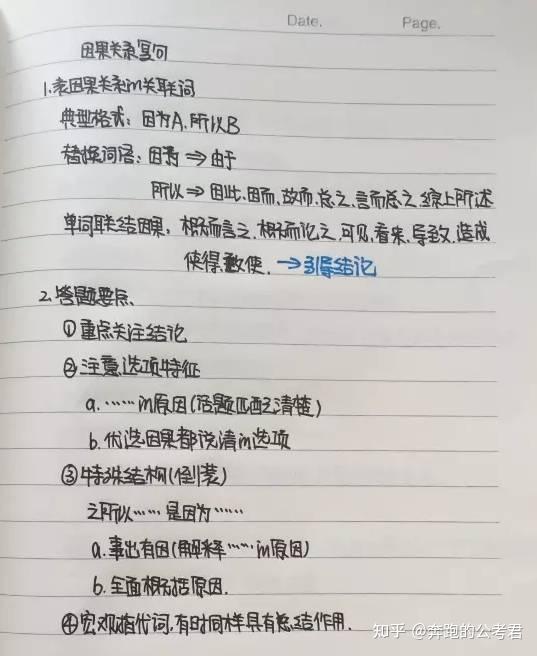 Date.
Page.
因果关系复句
1.表因果关系的关联词
典型格式：因为A，所以B
替换词语：因为⇒由于
所以⇒因此、因而、故而、总之、言而总之、综上所述
单词联结因果，概而言之、概而论之、可见、看来、导致、造成
使得、致使、→引导结论
2、答题要点、
①重点关注结论
②注意选项特征
a.……的原因(话题匹配清楚)
b.优选因果都说清的选项
③特殊结构(倒装)
之所以……是因为……
a.事出有因(解释……的原因)
b.全面概括原因.
④宏观指代词,有时同样具有总结作用.
知乎 @奔跑的公考君